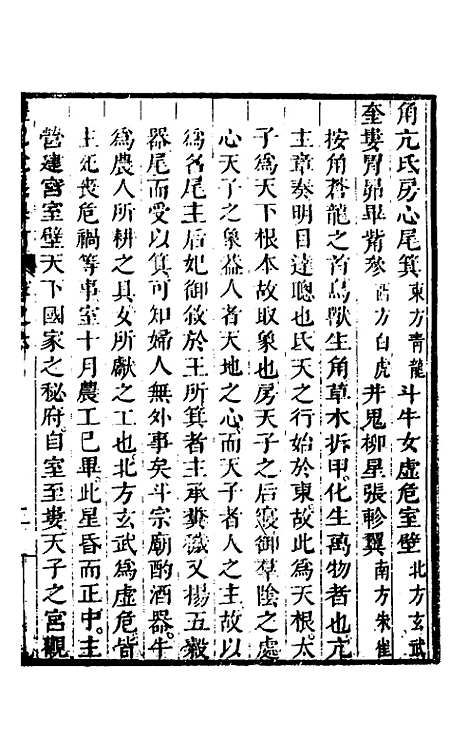 角亢氐房心尾箕東方青龍斗牛女虛危室壁北方玄武
奎婁胃昴畢觜參西方白虎井鬼柳星張軫翼南方朱雀
按角蒼龍之首鳥獸生角草木拆甲。化生萬物者也亢
主章奏明目達聰也氐天之行始於東。故此爲天根。太
子爲天下根本故取象也房天子之后寢御羣陰之處
心天子之象蓋人者天地之心。而天子者人之主故以
爲名尾主后妃御敘於王所箕者主承糞穢又揚五穀
器尾而受以箕可知婦人無外事矣斗宗廟酌酒器。牛
爲農人所耕之具女所獻之工也。北方玄武爲虛危。皆
主死喪危禍等事室十月農工已畢。此星昏而正中。主
營建宮室壁天下國家之秘府。自室至婁天子之宮觀